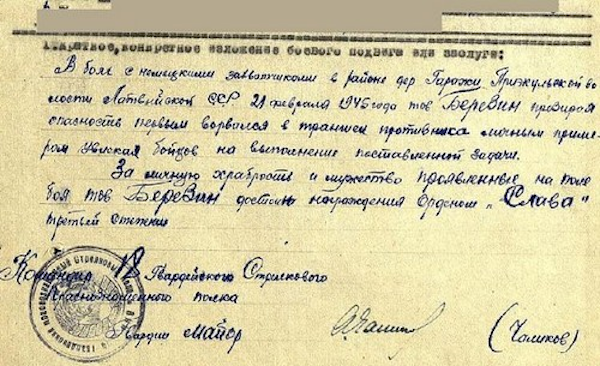 1. Краткое, конкретное изложение боевого подвига или заслуги:
В боях с немецкими захватчиками в районе дер Гарожи Прикульской во
лости Латвийской ССР 21 февраля 1945 года тов Беревин презирая
опасность первым ворвался в траншеи противника личным приме
ром увлекая бойцов на выполнение поставленной задачи.
За личную храбрость и мужество проявленные на поле
боя тов Беревин достоин награждения Орденом „Слава"
третьей степени
Командир Гвардейского Стрелкового
Краснознаменного полка
Гвардии Майор